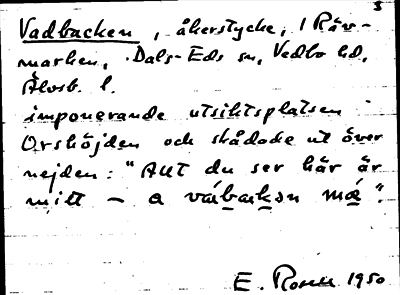 3
Vadbacken, åkerstycke, i Räv-
marken, Dals-Eds sn, Vedbo hd,
Älvsb. l.
imponerande utsiktsplatsen
Orshöjden och skådade ut över
nejden: "Allt du ser här är
mitt — a
E. 1950